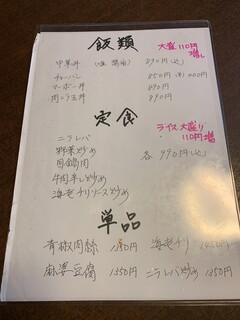 飯類 大盛110円増し
中華丼 (塩 醤油) 890円(込)
チャーハン 850円
マーボー丼 890
肉ニラ玉丼 890
定食 ライス大盛り110円増
ニラレバ
野菜炒め 各 990円(込)
回鍋肉
牛肉辛し炒め
海老チリソース炒め
単品
青椒肉絲 海老チリ
麻婆豆腐 1350円 ニラレバ炒め 1350円